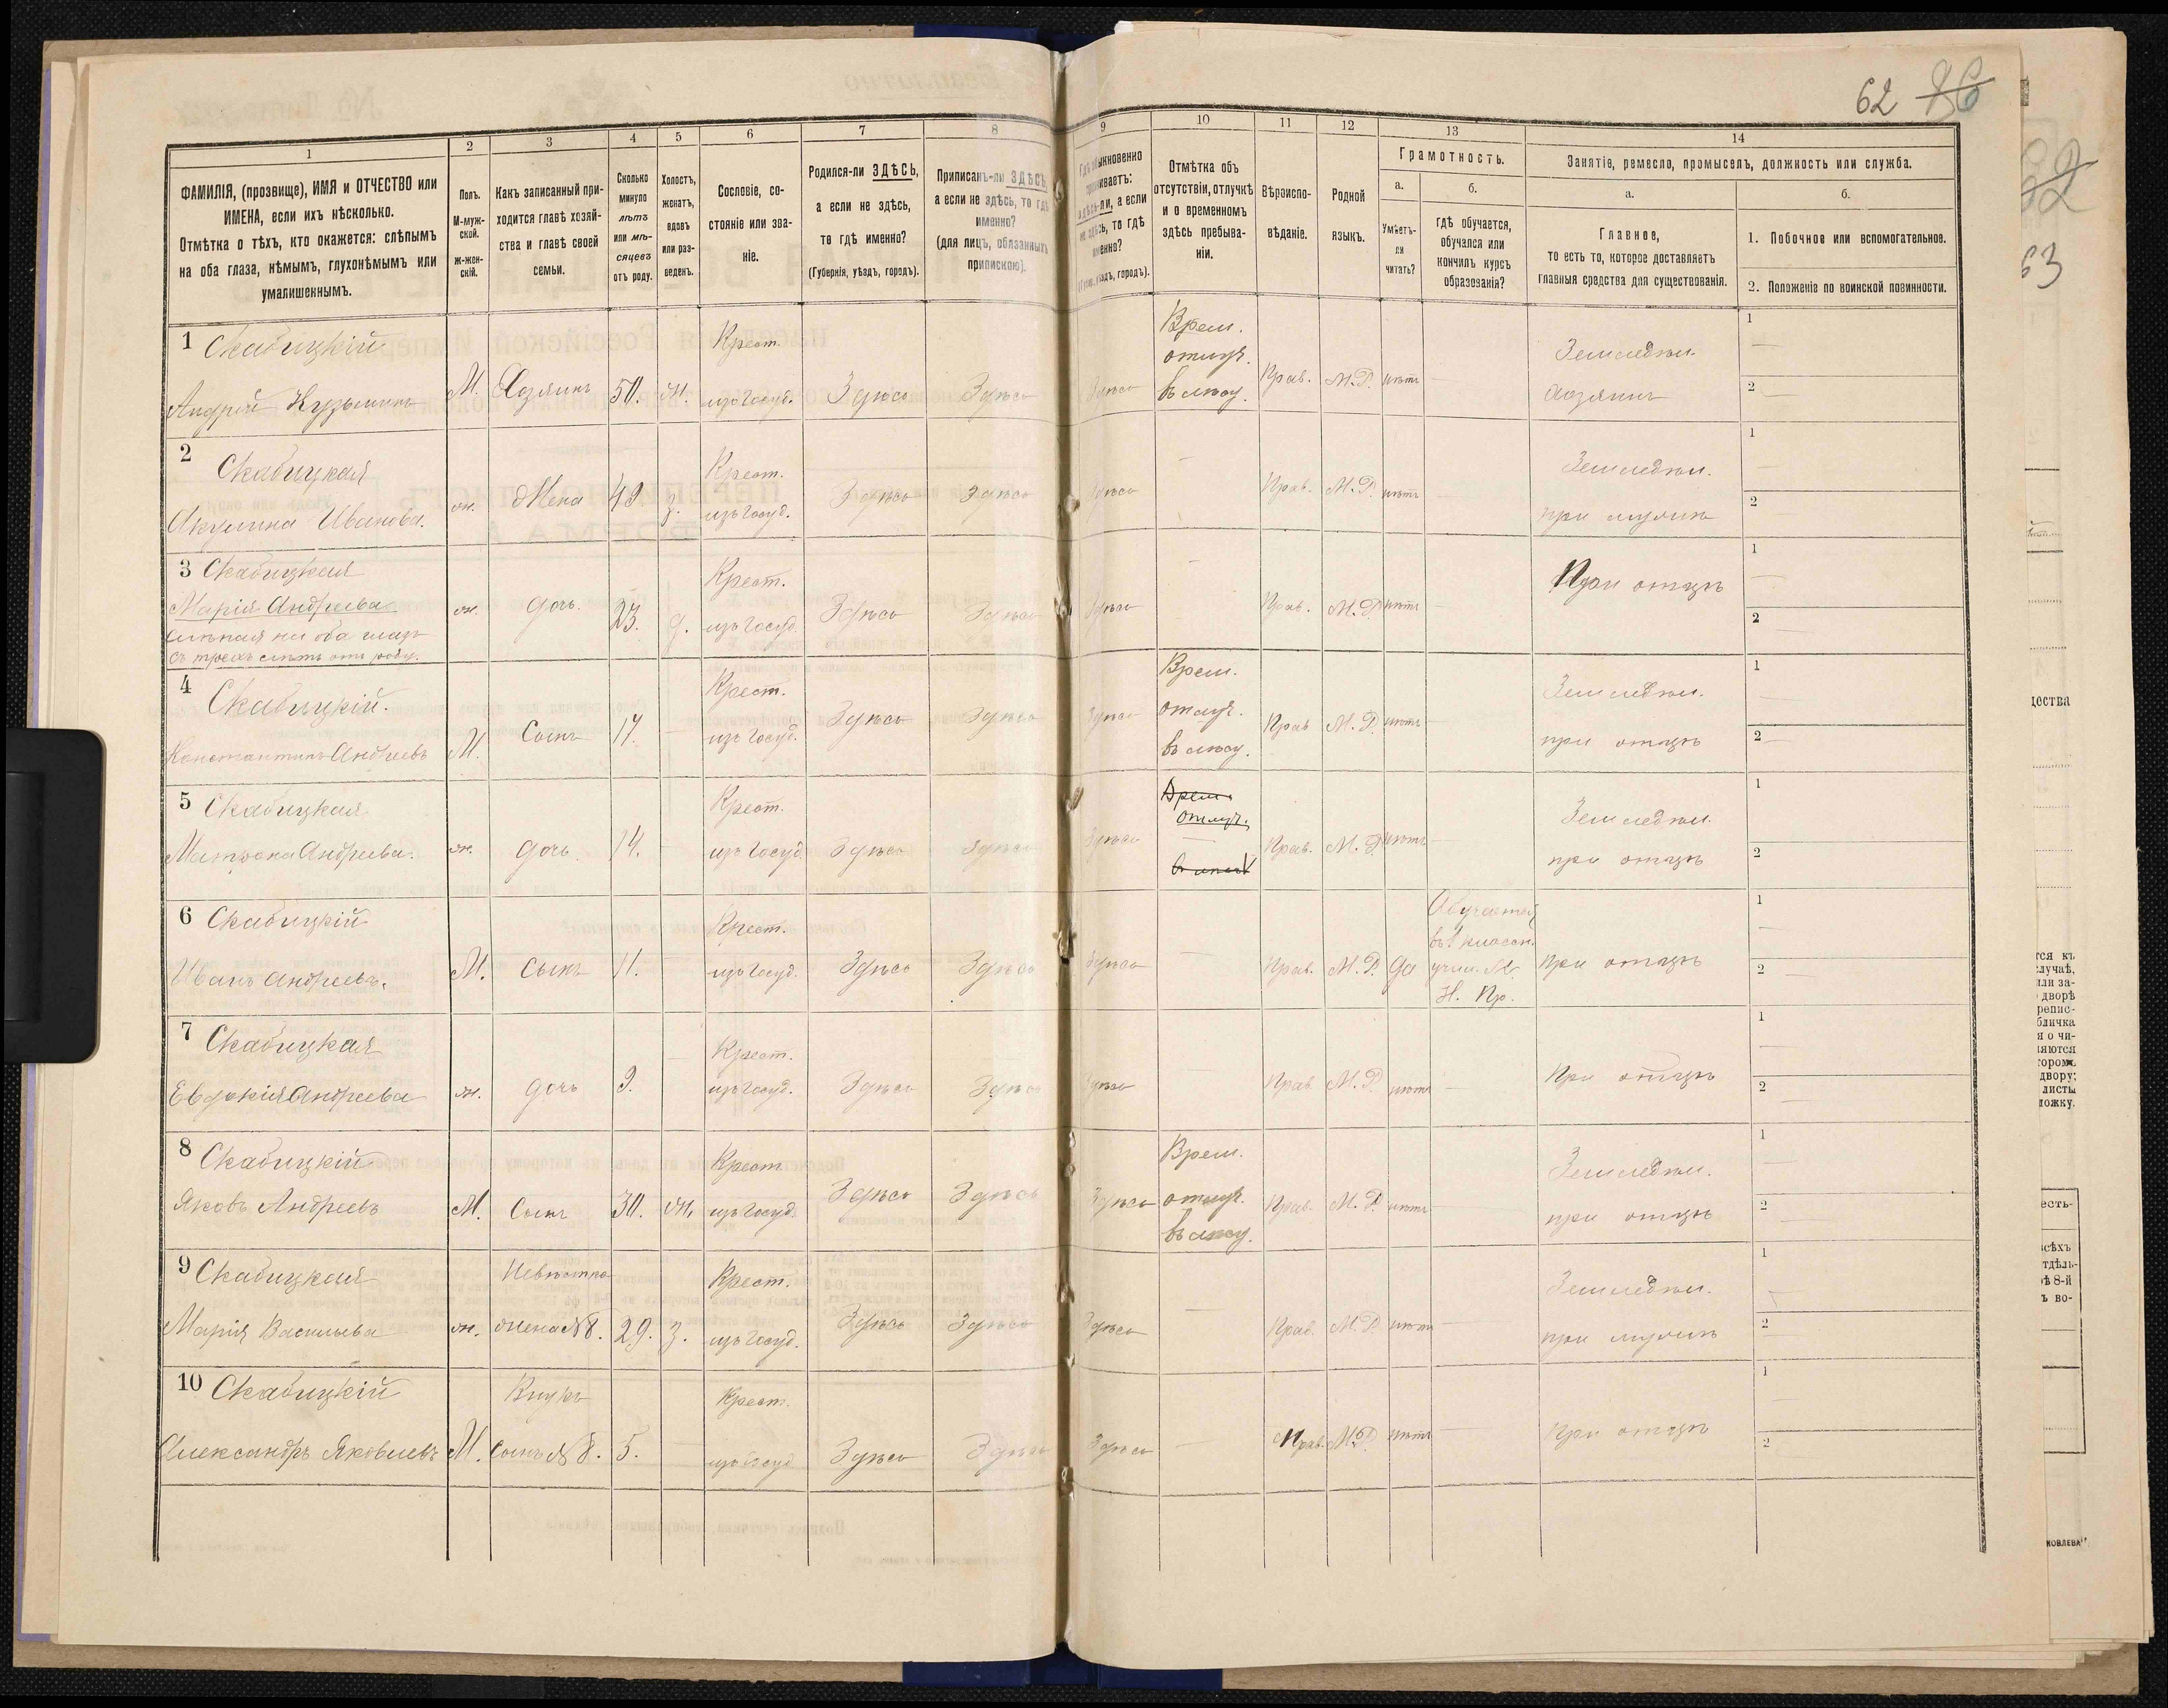 62 86
1
2
3
4
5
6
7
8
9
10
11
12
13
14
ФАМИЛІЯ, (прозвище), ИМЯ и ОТЧЕСТВО или
ИМЕНА, если ихъ нѣсколько.
Отмѣтка о тѣхъ, кто окажется: слѣпымъ
на оба глаза, нѣмымъ, глухонѣмымъ или
умалишеннымъ.
Полъ.
М-муж-
ской.
Ж-жен-
скій.
Какъ записанный при-
ходится главѣ хозяй-
ства и главѣ своей
семьи.
Сколько
минуло
лѣтъ
или мѣ-
сяцевъ
отъ роду.
Холостъ,
женатъ,
вдовъ
или раз-
веденъ.
Сословіе, со-
стояніе или зва-
ніе.
Родился-ли ЗДѢСЬ,
а если не здѣсь,
то гдѣ именно?
(Губернія, уѣздъ, городъ).
Приписанъ-ли ЗДѢСЬ,
а если не здѣсь, то гдѣ
именно?
(для лицъ, обязанныхъ
припискою).
Гдѣ обыкновенно
проживаетъ:
здѣсь-ли, а если
не здѣсь, то гдѣ
именно?
Отмѣтка объ
отсутствіи, отлучкѣ
и о временномъ
здѣсь пребыва-
ніи.
Вѣроиспо-
вѣданіе.
Родной
языкъ.
Грамотность.
а.
Умѣетъ-
ли
читать?
б.
Гдѣ обучается,
обучался или
кончилъ курсъ
образованія?
Занятіе, ремесло, промыселъ, должность или служба.
а.
Главное,
то есть то, которое доставляетъ
главныя средства для существованія.
б.
1. Побочное или вспомогательное.
2. Положеніе по воинской повинности.
1 Скабицкій
Андрій Кузьминъ
М. Хозяинъ 50. Ж. Крест.
изъ госуд. Здѣсь Здѣсь Здѣсь
Врем.
отлуч.
въ лѣсу.
Прав. М.Р. нѣтъ
Земледѣл.
хозяинъ
2 Скабицкая
Акулина Иванова.
ж. Жена 49 з. Крест.
изъ госуд. Здѣсь Здѣсь Здѣсь
Прав. М.Р. нѣтъ
Земледѣл.
при мужѣ
3 Скабицкая
Марія Андреева
слѣпая на оба глаз
съ трехъ лѣтъ отъ роду.
ж. дочь 23. д. Крест.
изъ госуд. Здѣсь Здѣсь Здѣсь
Прав. М.Р. нѣтъ
При отцѣ
4 Скабицкій.
Константинъ Андреевъ
М. Сынъ 17. Крест.
изъ госуд. Здѣсь Здѣсь Здѣсь
Врем.
отлуч.
въ лѣсу.
Прав М.Р. нѣтъ
Земледѣл.
при отцѣ
5 Скабицкая
Матрона Андреева.
ж. дочь 14. Крест.
изъ госуд Здѣсь Здѣсь Здѣсь
Врем.
отлуч.
Прав. М.Р. нѣтъ
Земледѣл.
при отцѣ
6 Скабицкій
Иванъ Андреевъ.
М. Сынъ 11. Крест.
изъ госуд. Здѣсь Здѣсь Здѣсь
Прав. М.Р. да
Обучается
въ 1 классн.
учил. М.
Н. Пр.
При отцѣ
7 Скабицкая
Евдокія Андреева
ж. дочь 9. Крест.
изъ госуд. Здѣсь Здѣсь Здѣсь
Прав М.Р. нѣтъ
При отцѣ
8 Скабицкій
Яковъ Андреевъ
М. Сынъ 30. Ж. Крест
изъ госуд. Здѣсь Здѣсь Здѣсь
Врем.
отлуч.
въ лѣсу.
Прав. М.Р. нѣтъ
Земледѣл.
при отцѣ
9 Скабицкая
Марія Васильева
ж. Невѣстка
жена №8. 29. з. Крест.
изъ госуд. Здѣсь Здѣсь Здѣсь
Прав. М.Р. нѣтъ
Земледѣл.
при мужѣ
10 Скабицкій
Александръ Яковлевъ
М. Внукъ
Сынъ №8. 5. Крест.
изъ госуд Здѣсь Здѣсь Здѣсь
Прав. М.Р. нѣтъ
При отцѣ
63